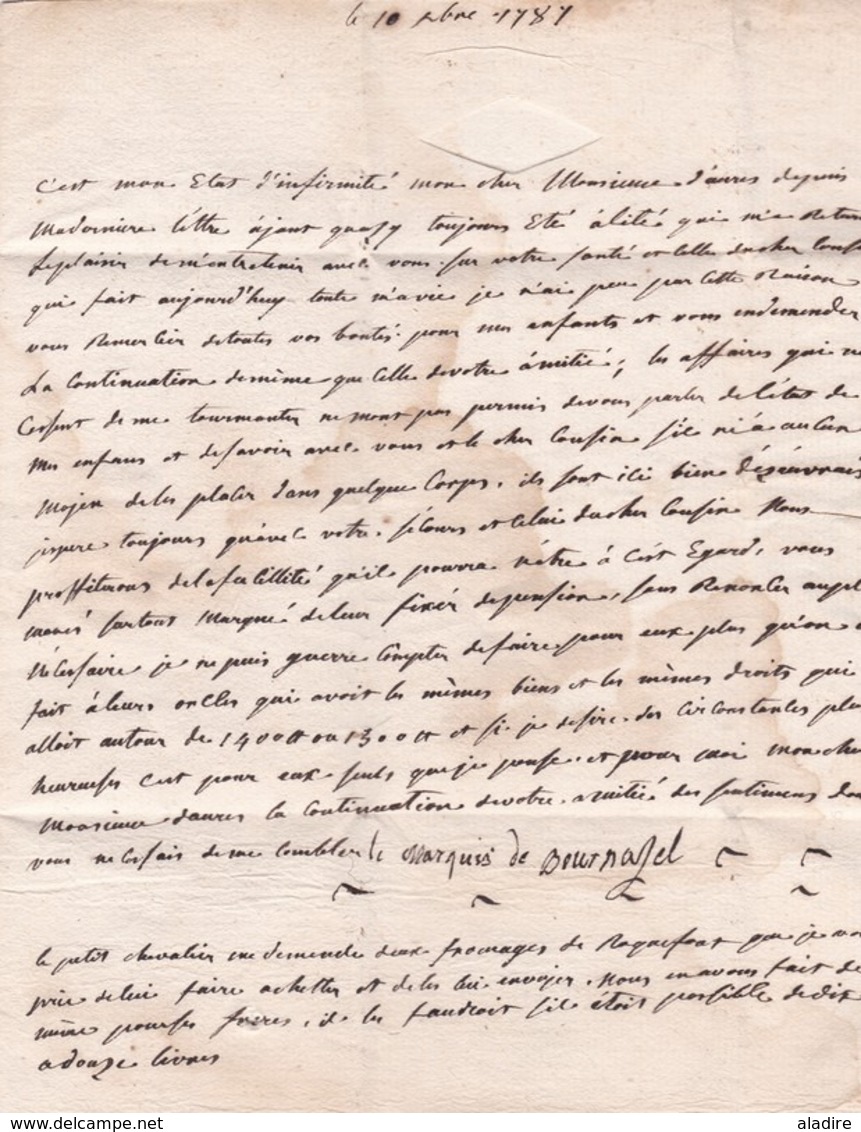 le 10 xbre 1787
c'est mon Etat d'infirmité mon cher Monsieur d'aures depuis
Maderniere léttre ajant quasy toujours Eté àlité qui m'a
leplaisir dem'entretenir avec vous sur votre santé et celle ducher
qui fait aujourd'huy toute mavie je n'ai peu par cette Raison
vous Remercier detoutes vos bontés pour mes enfants et vous endemender
La Continuation demême que celle devotre àmitié, les affaires qui ne
Cessent de me tourmanter ne mont pas permis devous parler de l'état de
Mes enfans et desavoir avec vous et le cher Cousin s'il ni à aucun
Mojen deles placer dans quelque Corps, ils sont ici bien
jespere toujours qu'avec votre sécours et celui ducher Cousin Nous
proffiterons delafacillité qu'il pourra n'étre à cét Egard, vous
surtout Marqué deleur fixér depension, sans Renoncer
Nécessaire je ne puis guerre Cómpter defaire pour eux plus qu'on
fait àleurs oncles qui avoit les mêmes biens et les mêmes droits qui
alloit autour de 1400tt ou 1300tt et si je desire des Circonstances plus
heureuses c'est pour eux seuls que je pense et pour moi mon cher
Monsieur daures la Continuation devotre amitié des sentimens dont
vous ne Cessés deme Combler le Marquis de Bournazel
le petit chevalier me demende deux fromages de Roquefort que je vous
prie delui faire achetter et deles lui envojer. Nous enavons fait de
même pourses freres, il les faudroit s'il étoit possible dedix
adouze livres
aladire